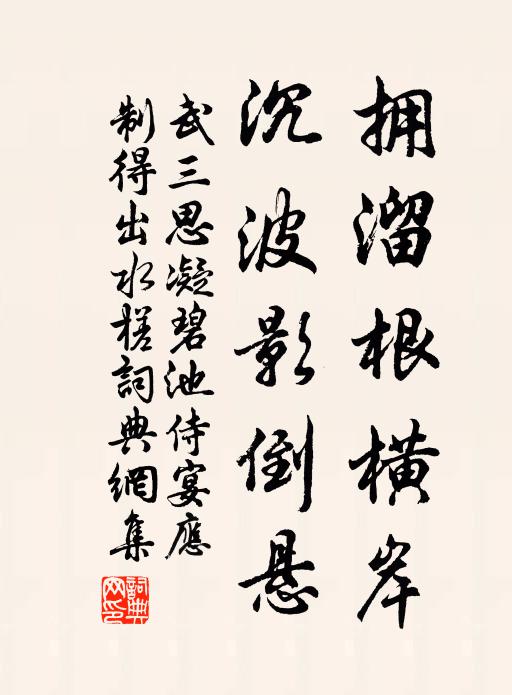 拥溜根横岸
沉波影倒悬
武三思凝碧池侍宴應
制得出水槎詞典網集
詞典网印